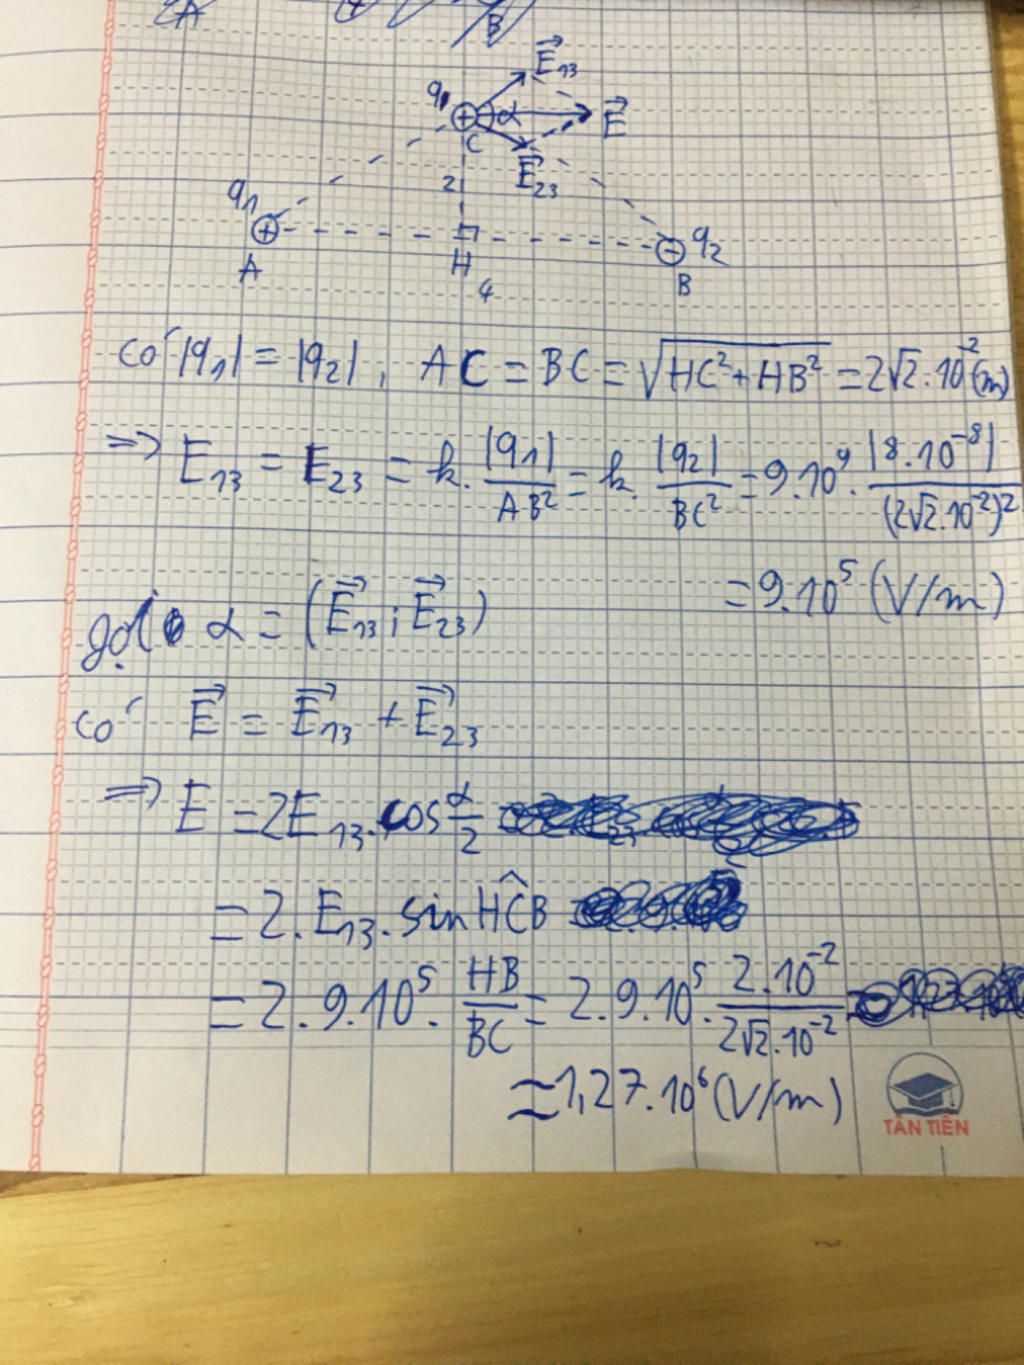 A B
E⃗₁₃
q₁ + α E⃗
C
E⃗₂₃
2
q₁ + - q₂
A H B
4
có |q₁| = |q₂| , AC = BC = √(HC² + HB²) = 2√2.10⁻² (m)
=> E₁₃ = E₂₃ = k. |q₁|/AB² = k. |q₂|/BC² = 9.10⁹. |8.10⁻⁸|/(2√2.10⁻²)²
= 9.10⁵ (V/m)
gọi α = (E⃗₁₃ ; E⃗₂₃)
có E⃗ = E⃗₁₃ + E⃗₂₃
=> E = 2E₁₃.cos α/2
= 2.E₁₃.sin HĈB
= 2.9.10⁵. HB/BC = 2.9.10⁵. 2.10⁻²/2√2.10⁻²
≈ 1,27.10⁶ (V/m)
TÂN TIẾN